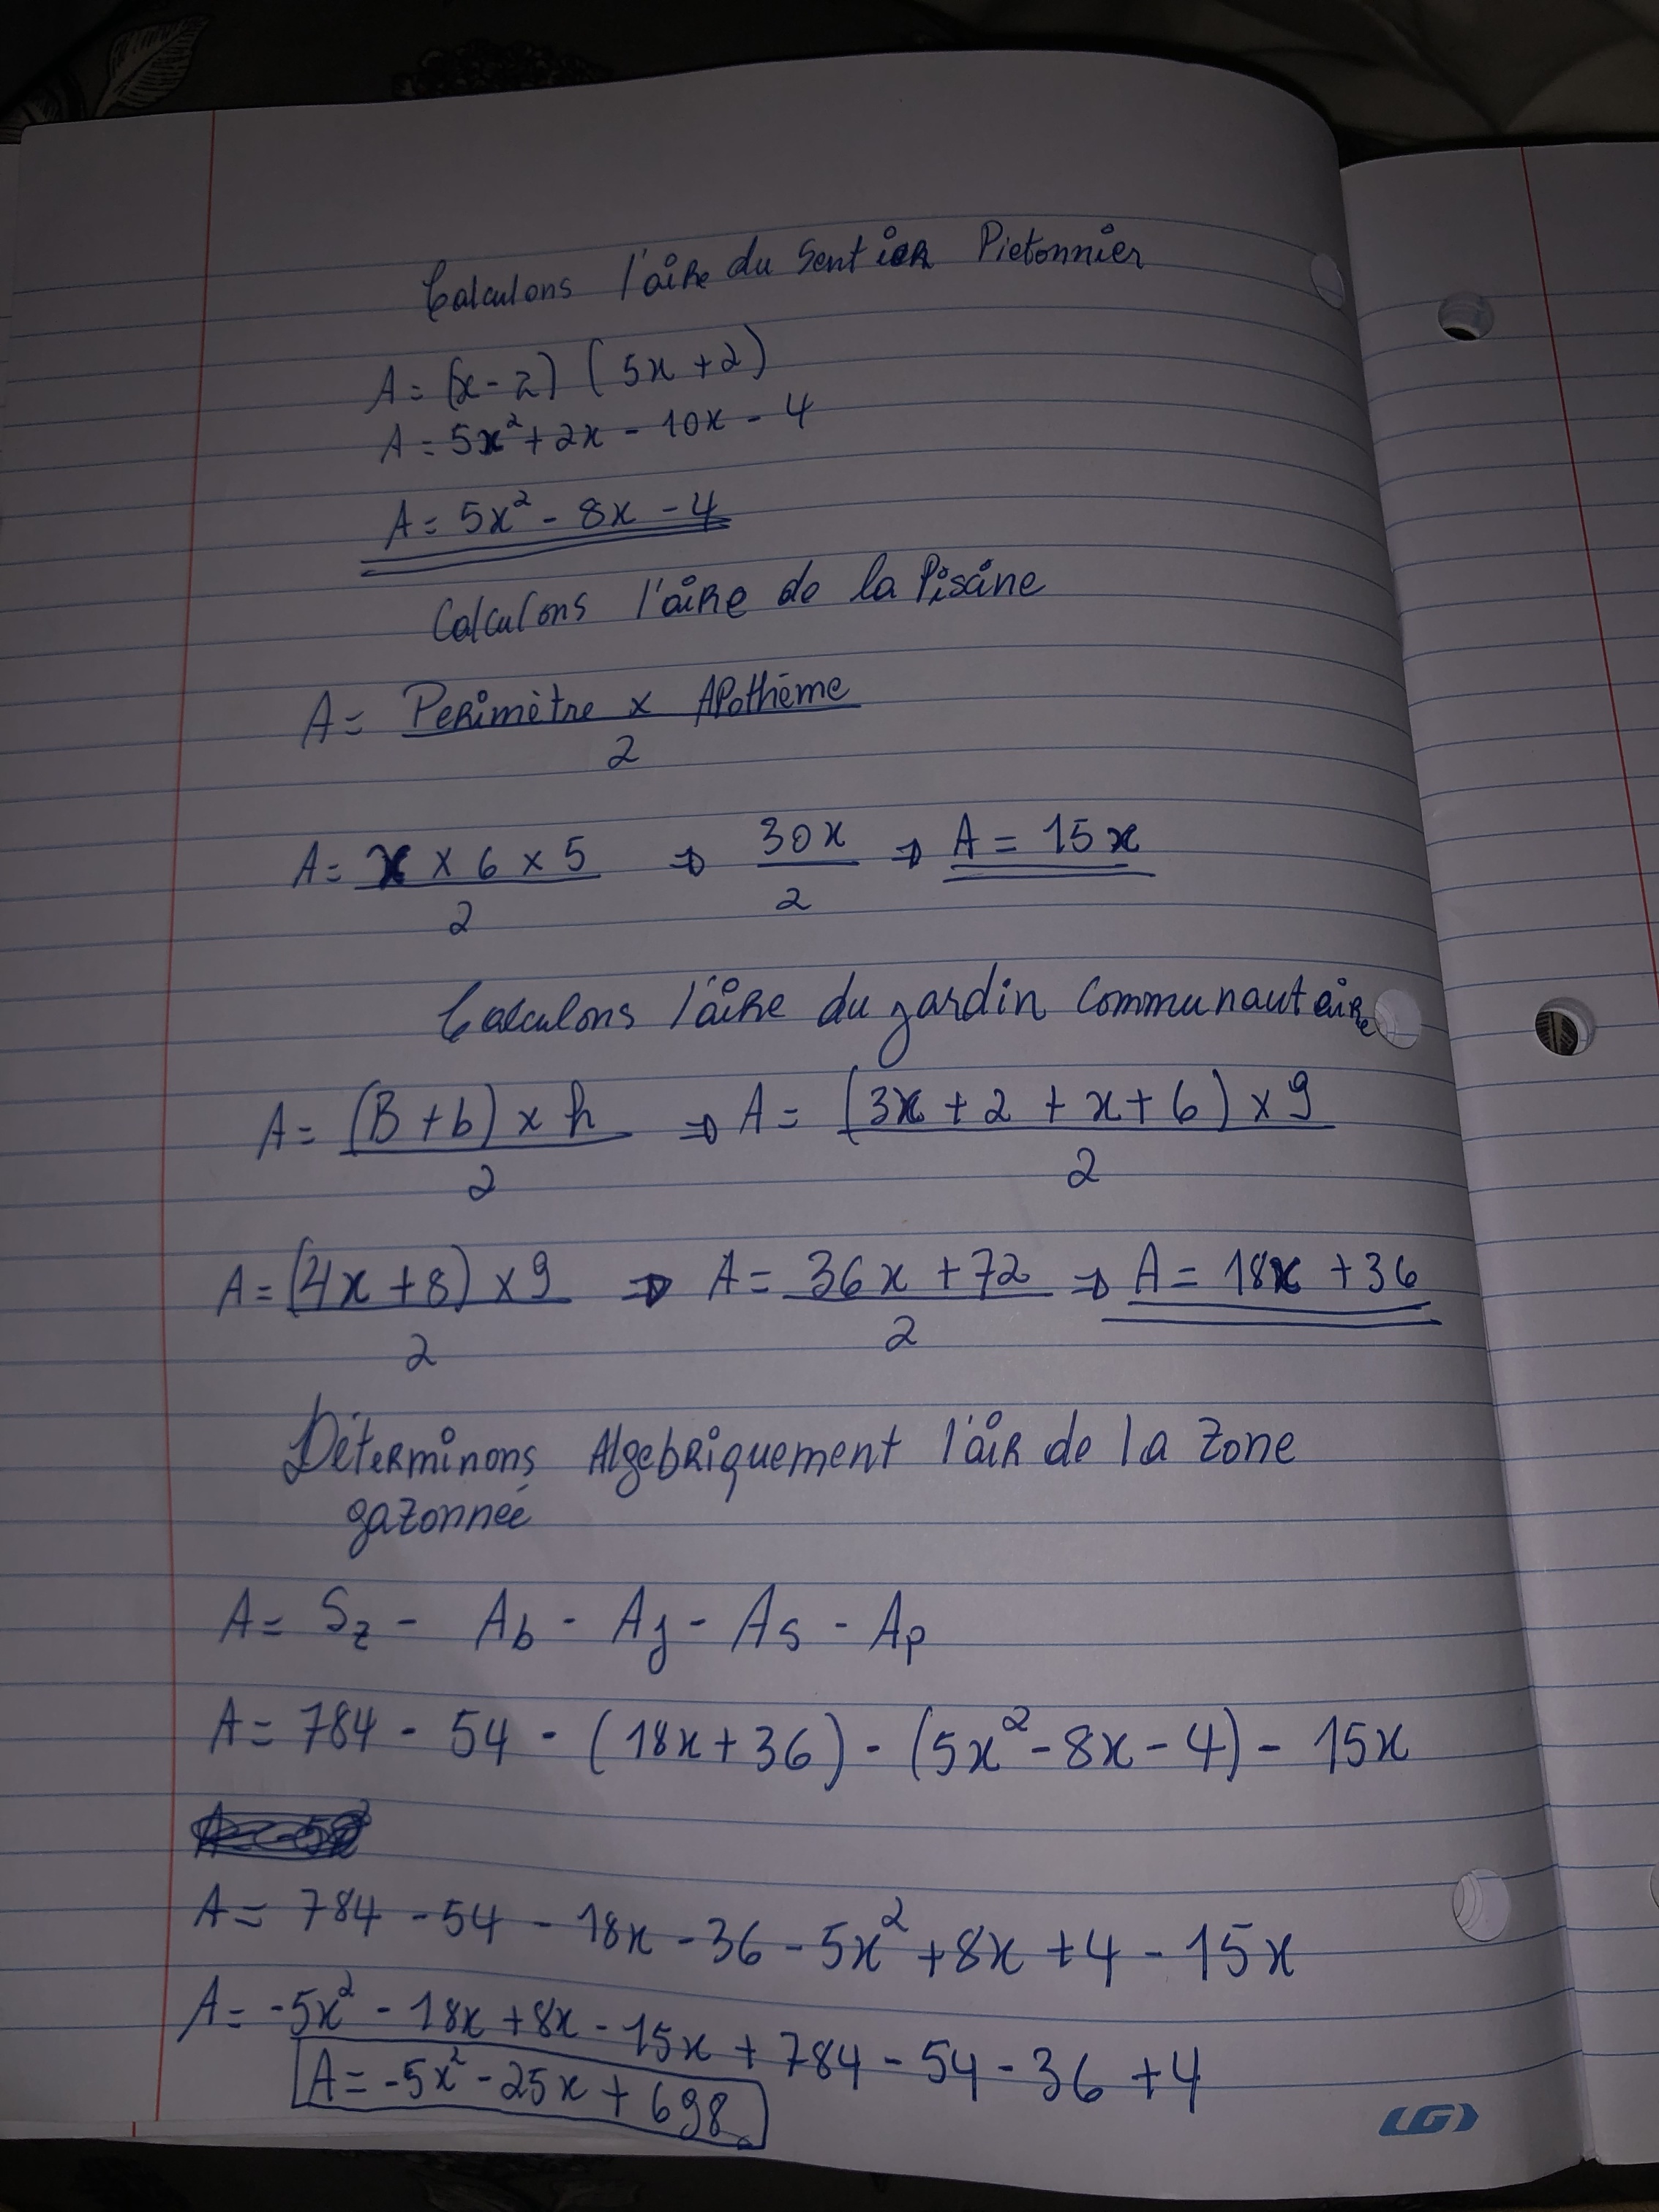 Calculons l'aire du Sentier Pietonnier
A = (x - 2) (5x + 2)
A = 5x² + 2x - 10x - 4
A = 5x² - 8x - 4
Calculons l'aire de la Pisine
A = Perimètre x APothème / 2
A = x x 6 x 5 / 2 ⇒ 30x / 2 ⇒ A = 15x
Calculons l'aire du jardin Communautaire
A = (B + b) x h / 2 ⇒ A = (3x + 2 + x + 6) x 9 / 2
A = (4x + 8) x 9 / 2 ⇒ A = 36x + 72 / 2 ⇒ A = 18x + 36
Déterminons Algebriquement l'air de la Zone
gazonnée
A = Sz - Ab - Aj - As - Ap
A = 784 - 54 - (18x + 36) - (5x² - 8x - 4) - 15x
A = 784 - 54 - 18x - 36 - 5x² + 8x + 4 - 15x
A = -5x² - 18x + 8x - 15x + 784 - 54 - 36 + 4
A = -5x² - 25x + 698
LG